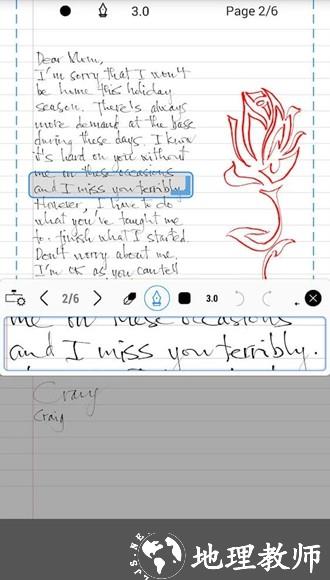 3.0
Page 2/6
Dear Mom,
I'm sorry that I won't
be home this holiday
season. There's always
more demand at the base
during these days. I know
it's hard on you without
me on these occasions
and I miss you terribly.
However, I have to do
what you've taught me
to. finish what I started.
Don't worry about me,
I'm OK as you can tell
2/6
3.0
me on these occasions
and I miss you terribly.
Craig
Craig
JS.NE
地理教师